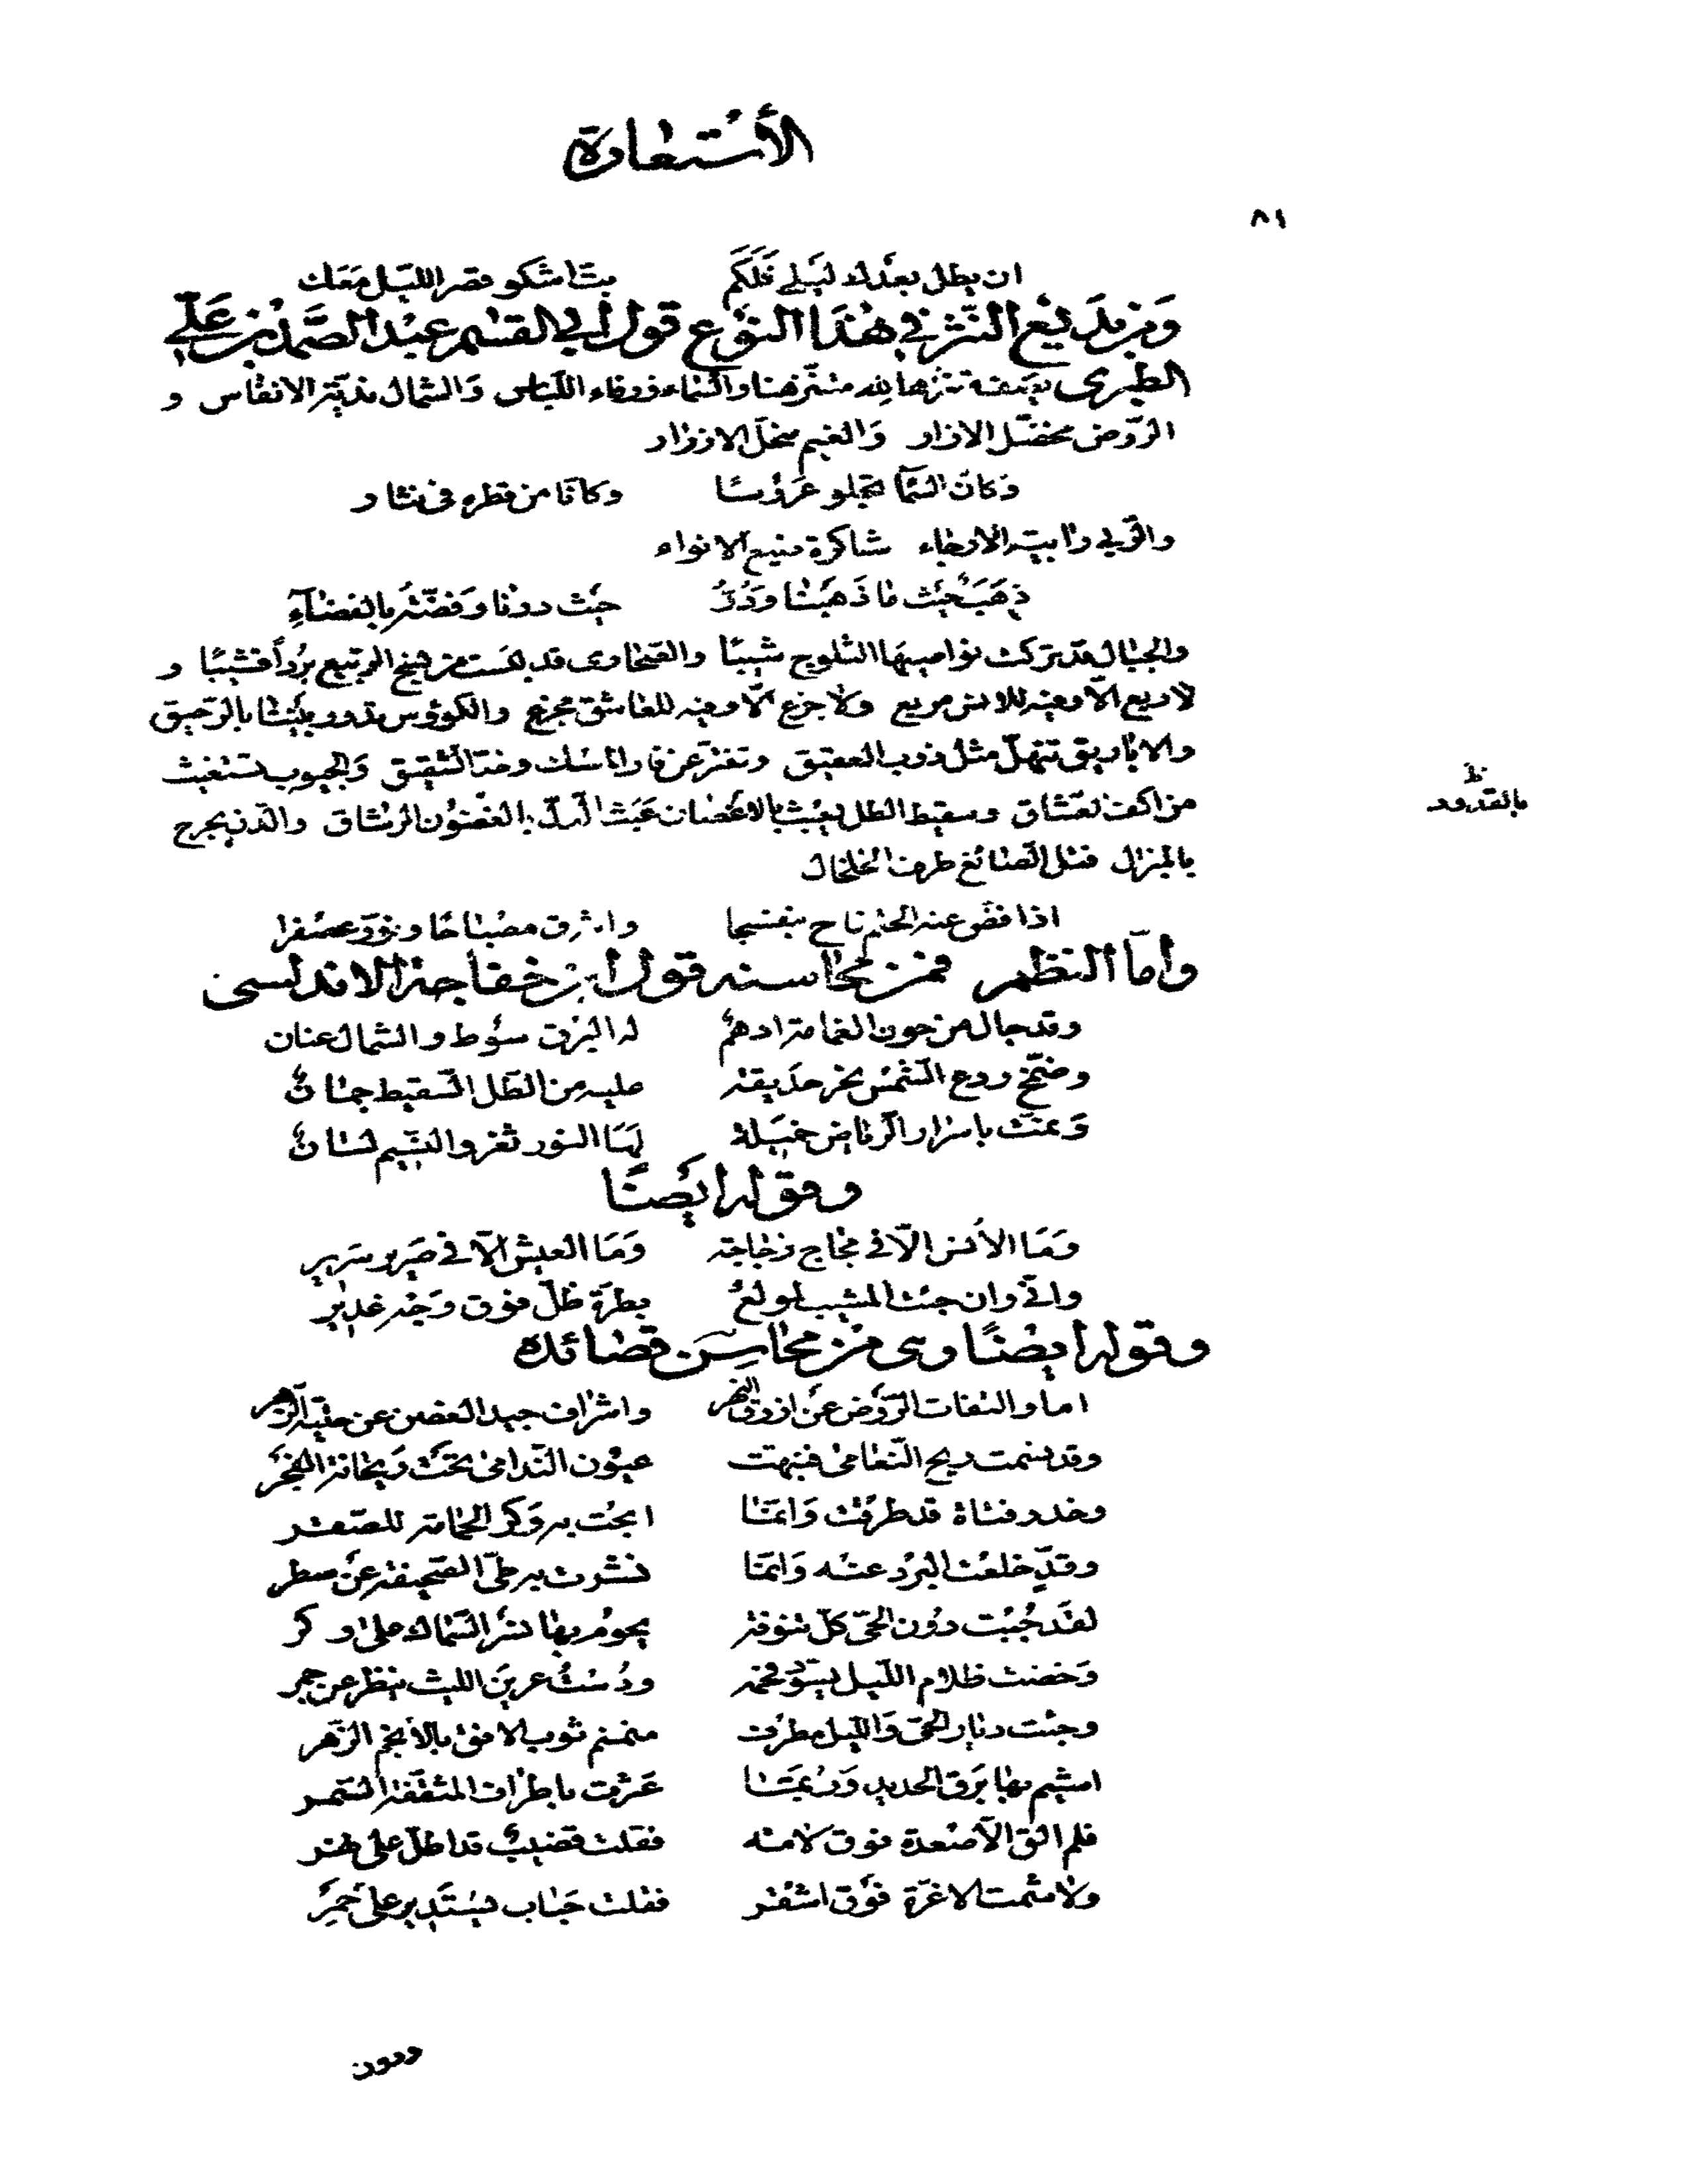 الأستعارة
٨١
ان يطل بعدك ليلي فلكم بتّ اشكو قصر الليل معك
ومن بديع النثر في هذا النوع قول أبي القسم عبد الصمد بن علي
الطبري يصف تنزها لله متنزهنا والسماء زرقاء اللباس والشمال نديّة الانفاس و
الروض مخضل الازار والغيم منحل الازرار
وكانّ السما تجلو عروسا وكانّا من قطره في نثار
والربي رابية الارجاء شاكرة صنيع الانواء
ذهب حيث ما ذهبنا ودرّ حيث درنا وفضّة بالفضاء
والجبال قد تركت نواصيها الثلوج شيبا والصحاري قد لبست من نسج الربيع بردا قشيبا و
لا ربع الّا وفيه للانس مربع ولا جزع الّا وفيه للعاشق مجزع والكوؤس تدور بيننا بالرحيق
والاباريق تنهلّ مثل ذوب العقيق وتفترّ عن فار المسك وخدّ الشقيق والجيوب تستغيث
من اكف العشاق وسقيط الطل يعبث بالاغصان عبث الدلّ بالغصون الرشاق والدن يجرح
بالقدود
بالمبزال فتل الصائغ طرف الخلخال
اذا فضّ عنه الختم فاح بنفسجا واشرق مصباحا ونوّر عصفرا
وامّا النظم فمن محاسنه قول ابن خفاجة الاندلسي
وقد جال من جون الغمامة ادهم له البرق سوط والشمال عنان
وضمّخ ردع الشمس نحر حديقة عليه من الطّل السّقيط جمان
ونمّت باسرار الرياض خميلة لها النور ثغر والنسيم لسان
وقوله ايضا
وما الأنس الّا في مجاج زجاجة وما العيش الّا في صرير سرير
واني وان جئت المشيب لمولع بطرة ظلّ فوق وجه غدير
وقوله ايضا وهي من محاسن قصائده
اما والتفات الرّوض عن ازرق النهر واشراف جيد الغصن عن حلية الزهر
وقد نسمت ريح النّعامى فنبهت عيون النّدامى تحت ريحانة الفجر
وخدر فتاة قد طرقت وانما ابحت به وكر الحمامة للصقر
وقد خلعت البرد عنه وانما نشرت به طيّ الصحيفة عن سطر
لقد جبت دون الحيّ كل تنوفة يحوم بها نسر السماك على وكر
وخضت ظلام الليل يسودّ فحمه ودست عرين الليث ينظر عن جمر
وجئت ديار الحيّ والليل مطرف منمنم ثوب الافق بالأنجم الزهر
اشيم بها برق الحديد وربما عثرت باطراف المثقفة السمر
فلم الق الّا صعدة فوق لامة فقلت قضيب قد اطلّ على نهر
ولا شمت الا غرّة فوق اشقر فقلت حباب يستدير على خمر
ودون